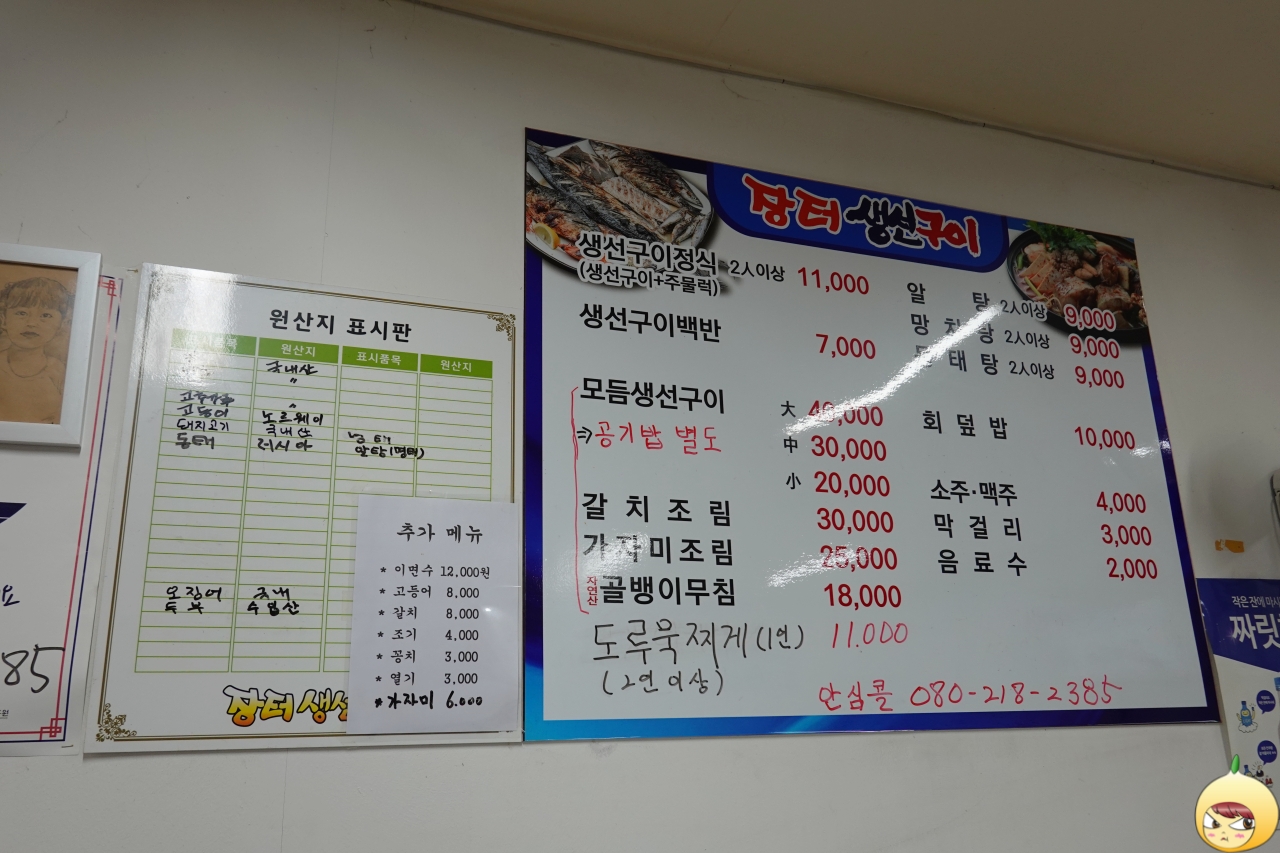 요
85
원산지 표시판
표시품목 원산지 표시품목 원산지
국내산
"
"
고춧가루
고등어 노르웨이
돼지고기 국내산
동태 러시아 알탕(명태)
오징어 국내
두부 수입산
장터생선
추가 메뉴
* 이면수 12,000원
* 고등어 8,000
* 갈치 8,000
* 조기 4,000
* 꽁치 3,000
* 열기 3,000
* 가자미 6.000
장터 생선구이
생선구이정식 2人이상 11,000
(생선구이+주물럭)
생선구이백반 7,000
모듬생선구이 大 40,000
⇒공기밥 별도 中 30,000
小 20,000
갈치조림 30,000
가자미조림 25,000
자연산 골뱅이무침 18,000
도루묵찌게(1인) 11.000
(2인 이상)
알탕 2人이상 9,000
망치탕 2人이상 9,000
동태탕 2人이상 9,000
회덮밥 10,000
소주·맥주 4,000
막걸리 3,000
음료수 2,000
안심콜 080-218-2385
작은 잔에 따시
짜릿